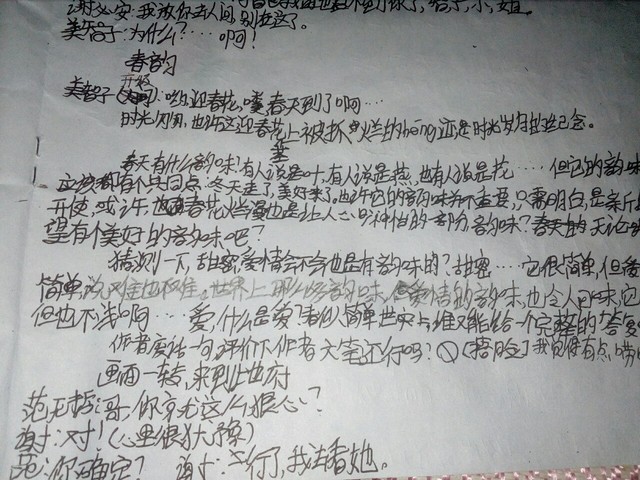 谢必安:我放你去人间,别在这了。
美智子:为什么?…啊!
春韵
开场
美智子:哟,迎春花,噢春天到了啊…
时光闪闪,也许这迎春花上被抓烂的héng迹是时光岁月的纪念。
春天有什么韵味!有人说是叶,有人说是燕,也有人说是花……但它的韵味
应该都有个共同点,冬天走了,美好来了。也许它的韵味并不重要,只需明白,是
开使,或许,也春花烂漫也是让人心旷神怡的一部分韵味?春天的无论
望有个美好的韵味吧?
猜测一下,甜密,爱情会不会也是有韵味的?甜密……它很简单,但爱
简单,说难也不难。世界上那么多韵味,爱情的韵味,也令人回味,它
但也不浅啊……爱,什么是爱?看似简单世实与谁又能给一个完整的答复
作者废话一句,评价下作者文笔还行吗?(捂脸)我觉得有点唠
画面一转,来到地府
范无咎:哥,你就这么狠心?
谢:对!(心里很犹豫)
范:你确定? 谢:行了,我去看她。